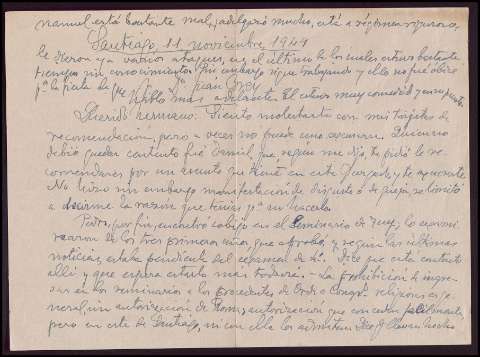 Manuel está bastante mal, adelgazó mucho, está a régimen riguroso,
le dieron ya varios ataques, en el último de los cuales estuvo bastante
tiempo sin conocimiento. Sin embargo sigue trabajando y ello no que
pª la fiesta de San Juan
Santiago, 11 noviembre, 1949
Pablo más adelante. Él estuvo muy comedido y
Querido hermano: Siento molestarte con mis tarjetas de
recomendación, pero a veces no puede uno excusarse. Quien no
debió quedar contento fué Daniel, que, según me dijo, te pidió le re-
comendases por un asunto que tiene en este Juzgado, y te
No hizo sin embargo manifestación de disgusto ó de queja, se limitó
a decirme la razón que tenías pª no hacerlo.
Pedro, por fin, encontró cobijo en el Seminario de Tuy, lo
de los tres primeros años, que aprobó, y según las últimas
noticias, estaba pendiente del examen de 4º. Dice que está contento
allí y que espera estarlo más todavía. - La prohibición de ingre-
sar en los seminarios a los procedentes de Ords. o Congr. religiosas es ge-
neral, sin autorización de Roma, autorización que conceden fácilmente,
pero en este de Santiago, ni con ella los admiten.